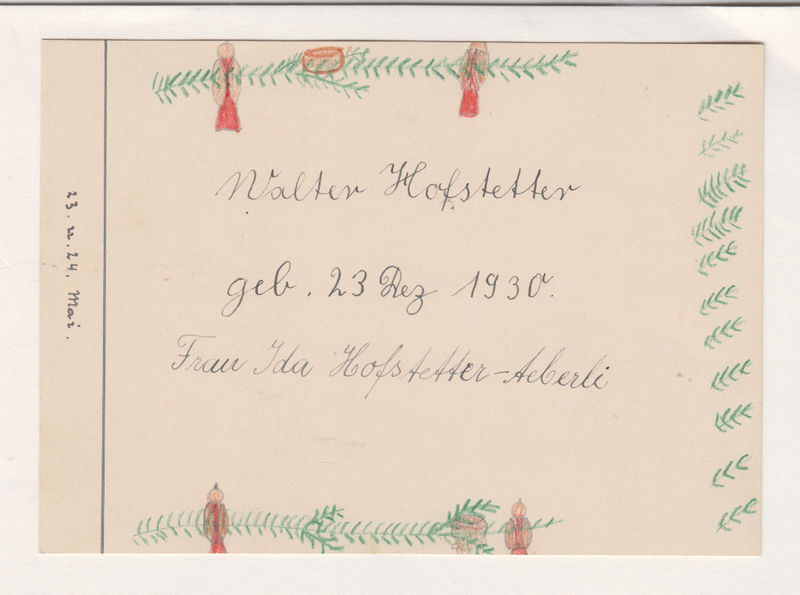 Walter Hofstetter
geb. 23 Dez 1930.
Frau Ida Hofstetter-Aeberli
23. u. 24. Mai.